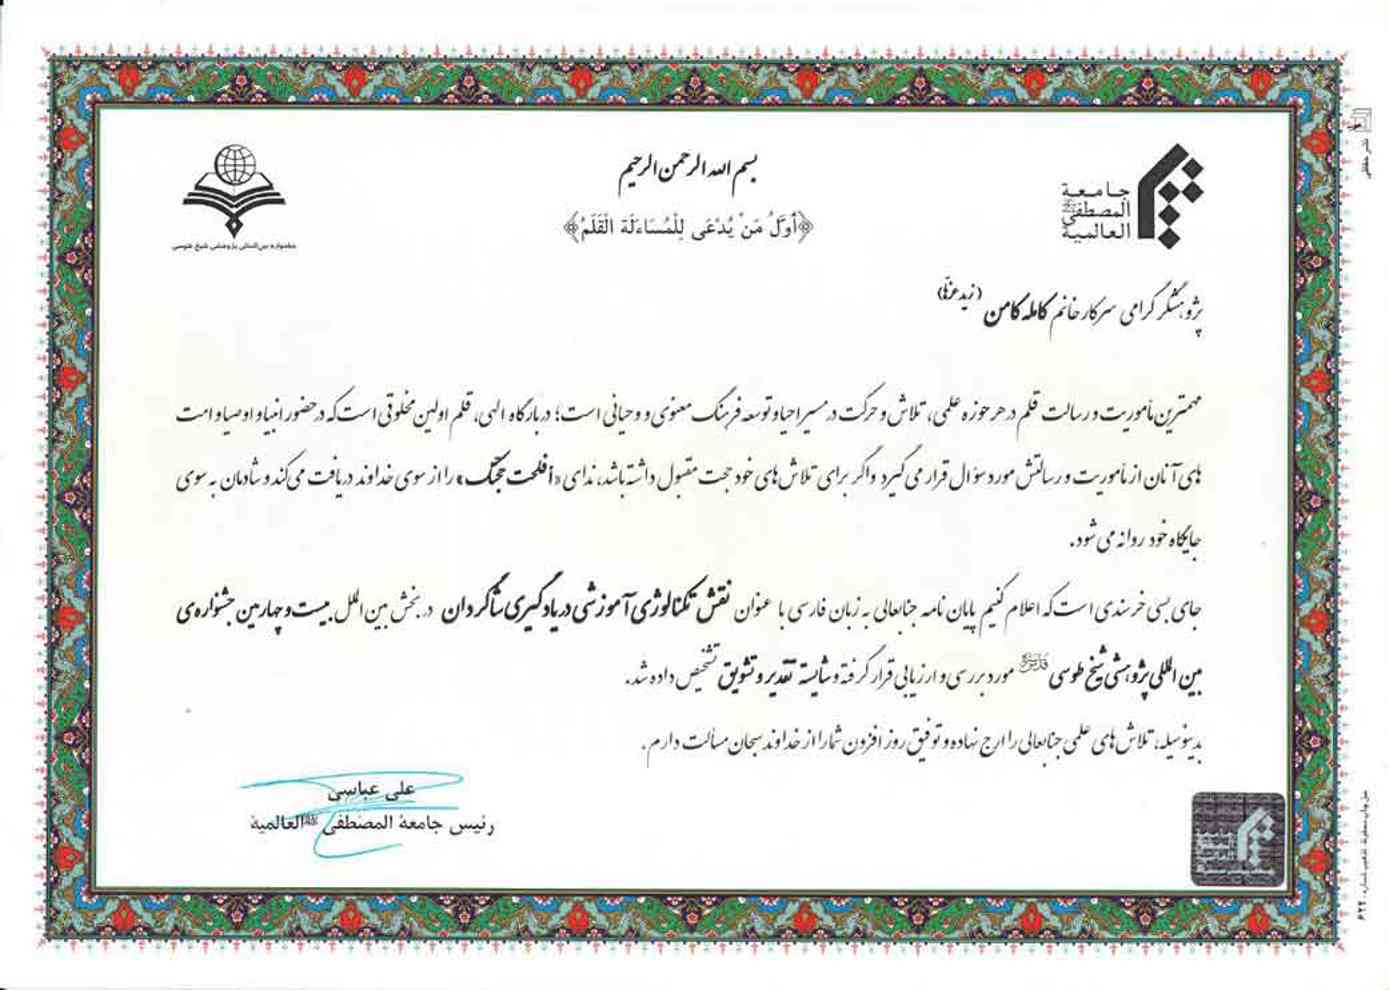 بسم الله الرحمن الرحیم
﴿أَوَّلُ مَنْ يُدْعَى لِلْمُسَاءَلَة الْقَلَمُ﴾
جامعة
المصطفی
العالمية
جشنواره بین‌المللی پژوهشی شیخ طوسی
پژوهشگر گرامی سرکار خانم کامله کامن (زید عزّها)
مهمترین مأموریت و رسالت قلم در هر حوزه علمی، تلاش و حرکت در مسیر احیاء و توسعه فرهنگ معنوی و وحیانی است؛ در بارگاه الهی، قلم اولین مخلوقی است که در حضور انبیا و اوصیا و امت
های آنان از مأموریت و رسالتش مورد سؤال قرار می گیرد و اگر برای تلاش های خود حجت مقبول داشته باشد، ندای «أفلحت حجتک» را از سوی خداوند دریافت می کند و شادمان به سوی
جایگاه خود روانه می شود.
جای بسی خرسندی است که اعلام کنیم پایان نامه جنابعالی به زبان فارسی با عنوان نقش تکنالوژی آموزشی در یادگیری شاگردان در بخش بین الملل بیست و چهارمین جشنواره‌ی
بین المللی پژوهشی شیخ طوسی مورد بررسی و ارزیابی قرار گرفته و شایسته تقدیر و تشویق تشخیص داده شد.
بدینوسیله، تلاش های علمی جنابعالی را ارج نهاده و توفیق روز افزون شما را از خداوند سبحان مسألت دارم.
علی عباسی
رئیس جامعة المصطفی العالمیة